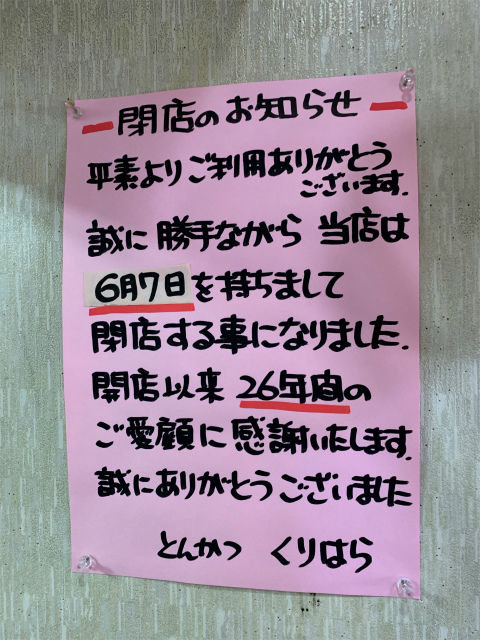 閉店のお知らせ
平素よりご利用ありがとう
ございます.
誠に勝手ながら 当店は
6月7日を持ちまして
閉店する事になりました.
開店以来 26年間の
ご愛顧に感謝いたします.
誠にありがとうございました
とんかつ くりはら